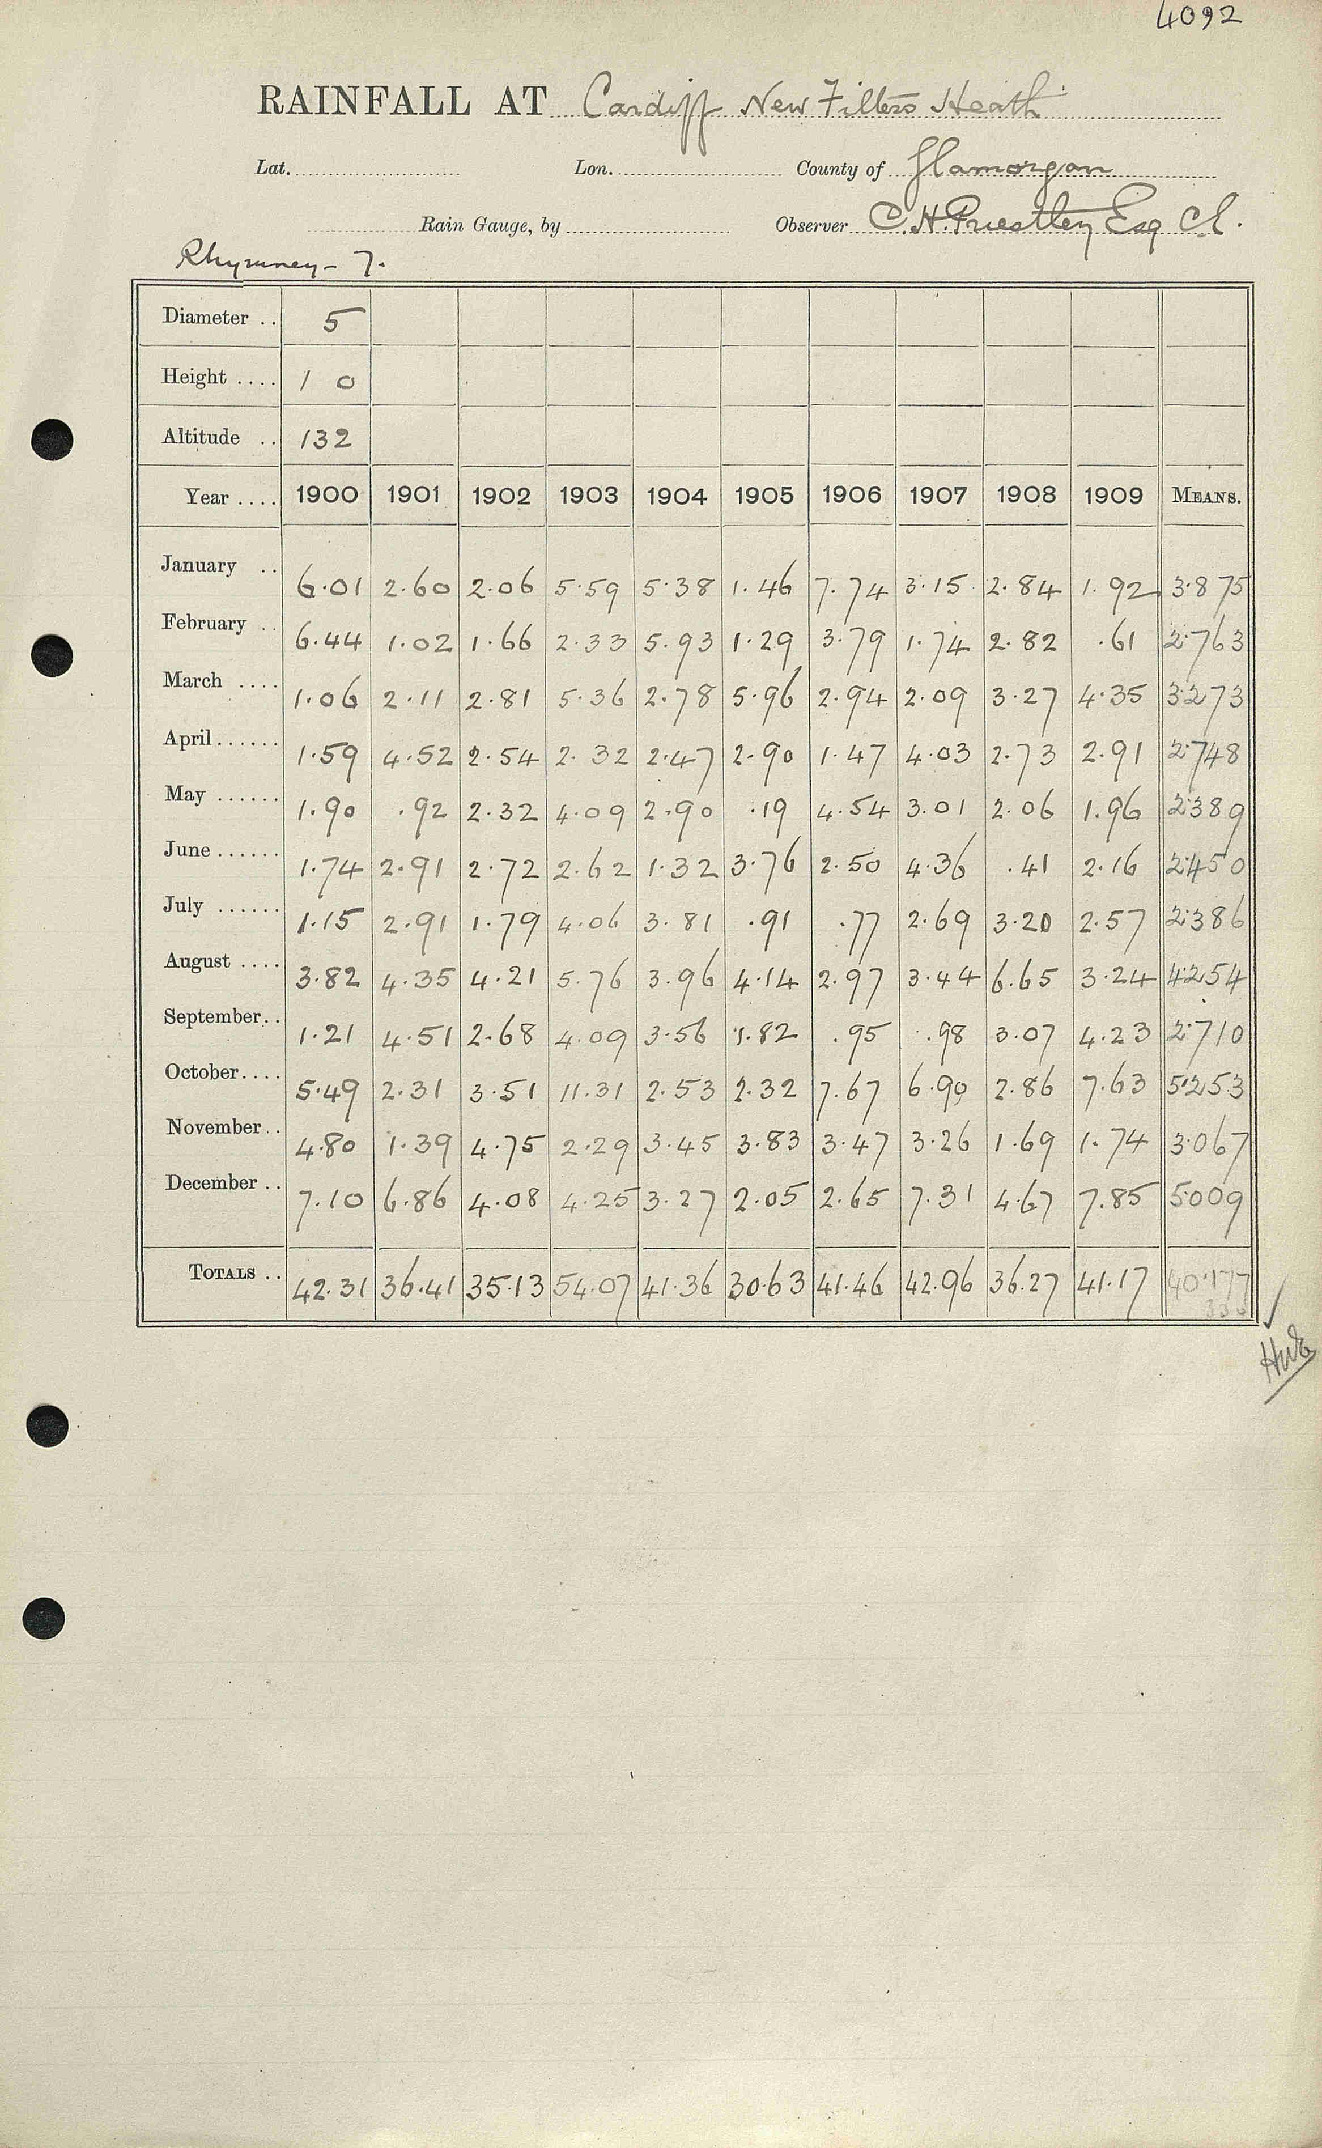 4092
RAINFALL AT Cardiff New Filters Heath
Lat. Lon. County of Glamorgan
Rain Gauge, by Observer C.H. Priestley Esq C.E.
Rhymney - 7.
Diameter .. 5
Height .... 1 0
Altitude .. 132
Year .... 1900 1901 1902 1903 1904 1905 1906 1907 1908 1909 MEANS.
January .. 6.01 2.60 2.06 5.59 5.38 1.46 7.74 3.15 2.84 1.92 3.875
February .. 6.44 1.02 1.66 2.33 5.93 1.29 3.79 1.74 2.82 .61 2.763
March .... 1.06 2.11 2.81 5.36 2.78 5.96 2.94 2.09 3.27 4.35 3.273
April ...... 1.59 4.52 2.54 2.32 2.47 2.90 1.47 4.03 2.73 2.91 2.748
May ...... 1.90 .92 2.32 4.09 2.90 .19 4.54 3.01 2.06 1.96 2.389
June ...... 1.74 2.91 2.72 2.62 1.32 3.76 2.50 4.36 .41 2.16 2.450
July ...... 1.15 2.91 1.79 4.06 3.81 .91 .77 2.69 3.20 2.57 2.386
August .... 3.82 4.35 4.21 5.76 3.96 4.14 2.97 3.44 6.65 3.24 4.254
September .. 1.21 4.51 2.68 4.09 3.56 1.82 .95 .98 3.07 4.23 2.710
October .... 5.49 2.31 3.51 11.31 2.53 2.32 7.67 6.90 2.86 7.63 5.253
November .. 4.80 1.39 4.75 2.29 3.45 3.83 3.47 3.26 1.69 1.74 3.067
December .. 7.10 6.86 4.08 4.25 3.27 2.05 2.65 7.31 4.67 7.85 5.009
TOTALS .. 42.31 36.41 35.13 54.07 41.36 30.63 41.46 42.96 36.27 41.17 40.177